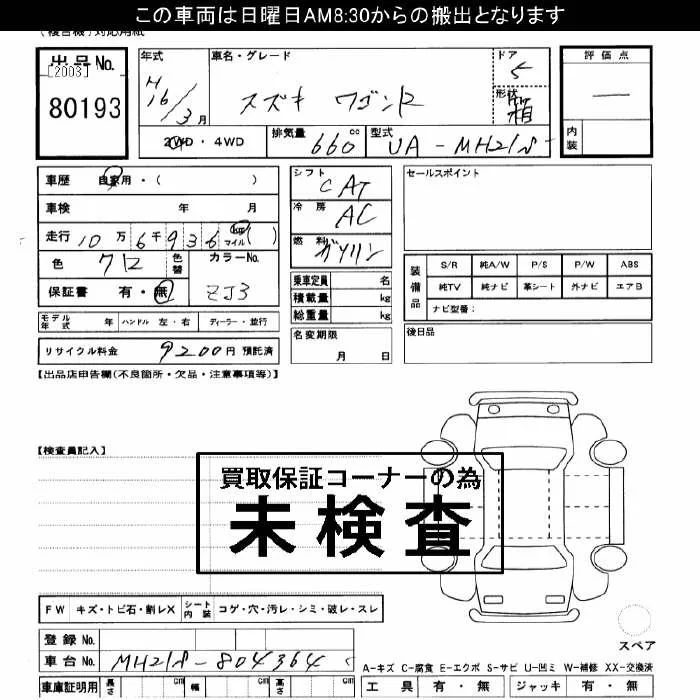 この車両は日曜日AM8:30からの搬出となります
出品No.
[2003]
80193
年式
H16/3月
車名・グレード
スズキ ワゴンR
ドア
5
形状
箱
評価点
―
内装
2WD・4WD
排気量
660cc
型式
UA-MH21S
車歴 自家用・( )
車検 年 月
走行 10万6千936 km マイル ( )
色 クロ 色替
カラーNo.
ZJ3
保証書 有・無
モデル年式 年 ハンドル 左・右 ディーラー・並行
リサイクル料金 9200円 預託済
シフト
CAT
冷房
AC
燃料
ガソリン
乗車定員 名
積載量 kg
総重量 kg
名変期限
月 日
セールスポイント
装備品
S/R 純A/W P/S P/W ABS
純TV 純ナビ 革シート 外ナビ エアB
ナビ型番:
後日品
【出品店申告欄(不良箇所・欠品・注意事項等)】
【検査員記入】
買取保証コーナーの為
未検査
FW キズ・トビ石・割レX シート内装 コゲ・穴・汚レ・シミ・破レ・スレ
登録No.
車台No. MH21S-804364
車庫証明用 長さ cm 幅 cm 高さ cm
スペア
A-キズ C-腐食 E-エクボ S-サビ U-凹ミ W-補修 XX-交換済
工具 有・無 ジャッキ 有・無